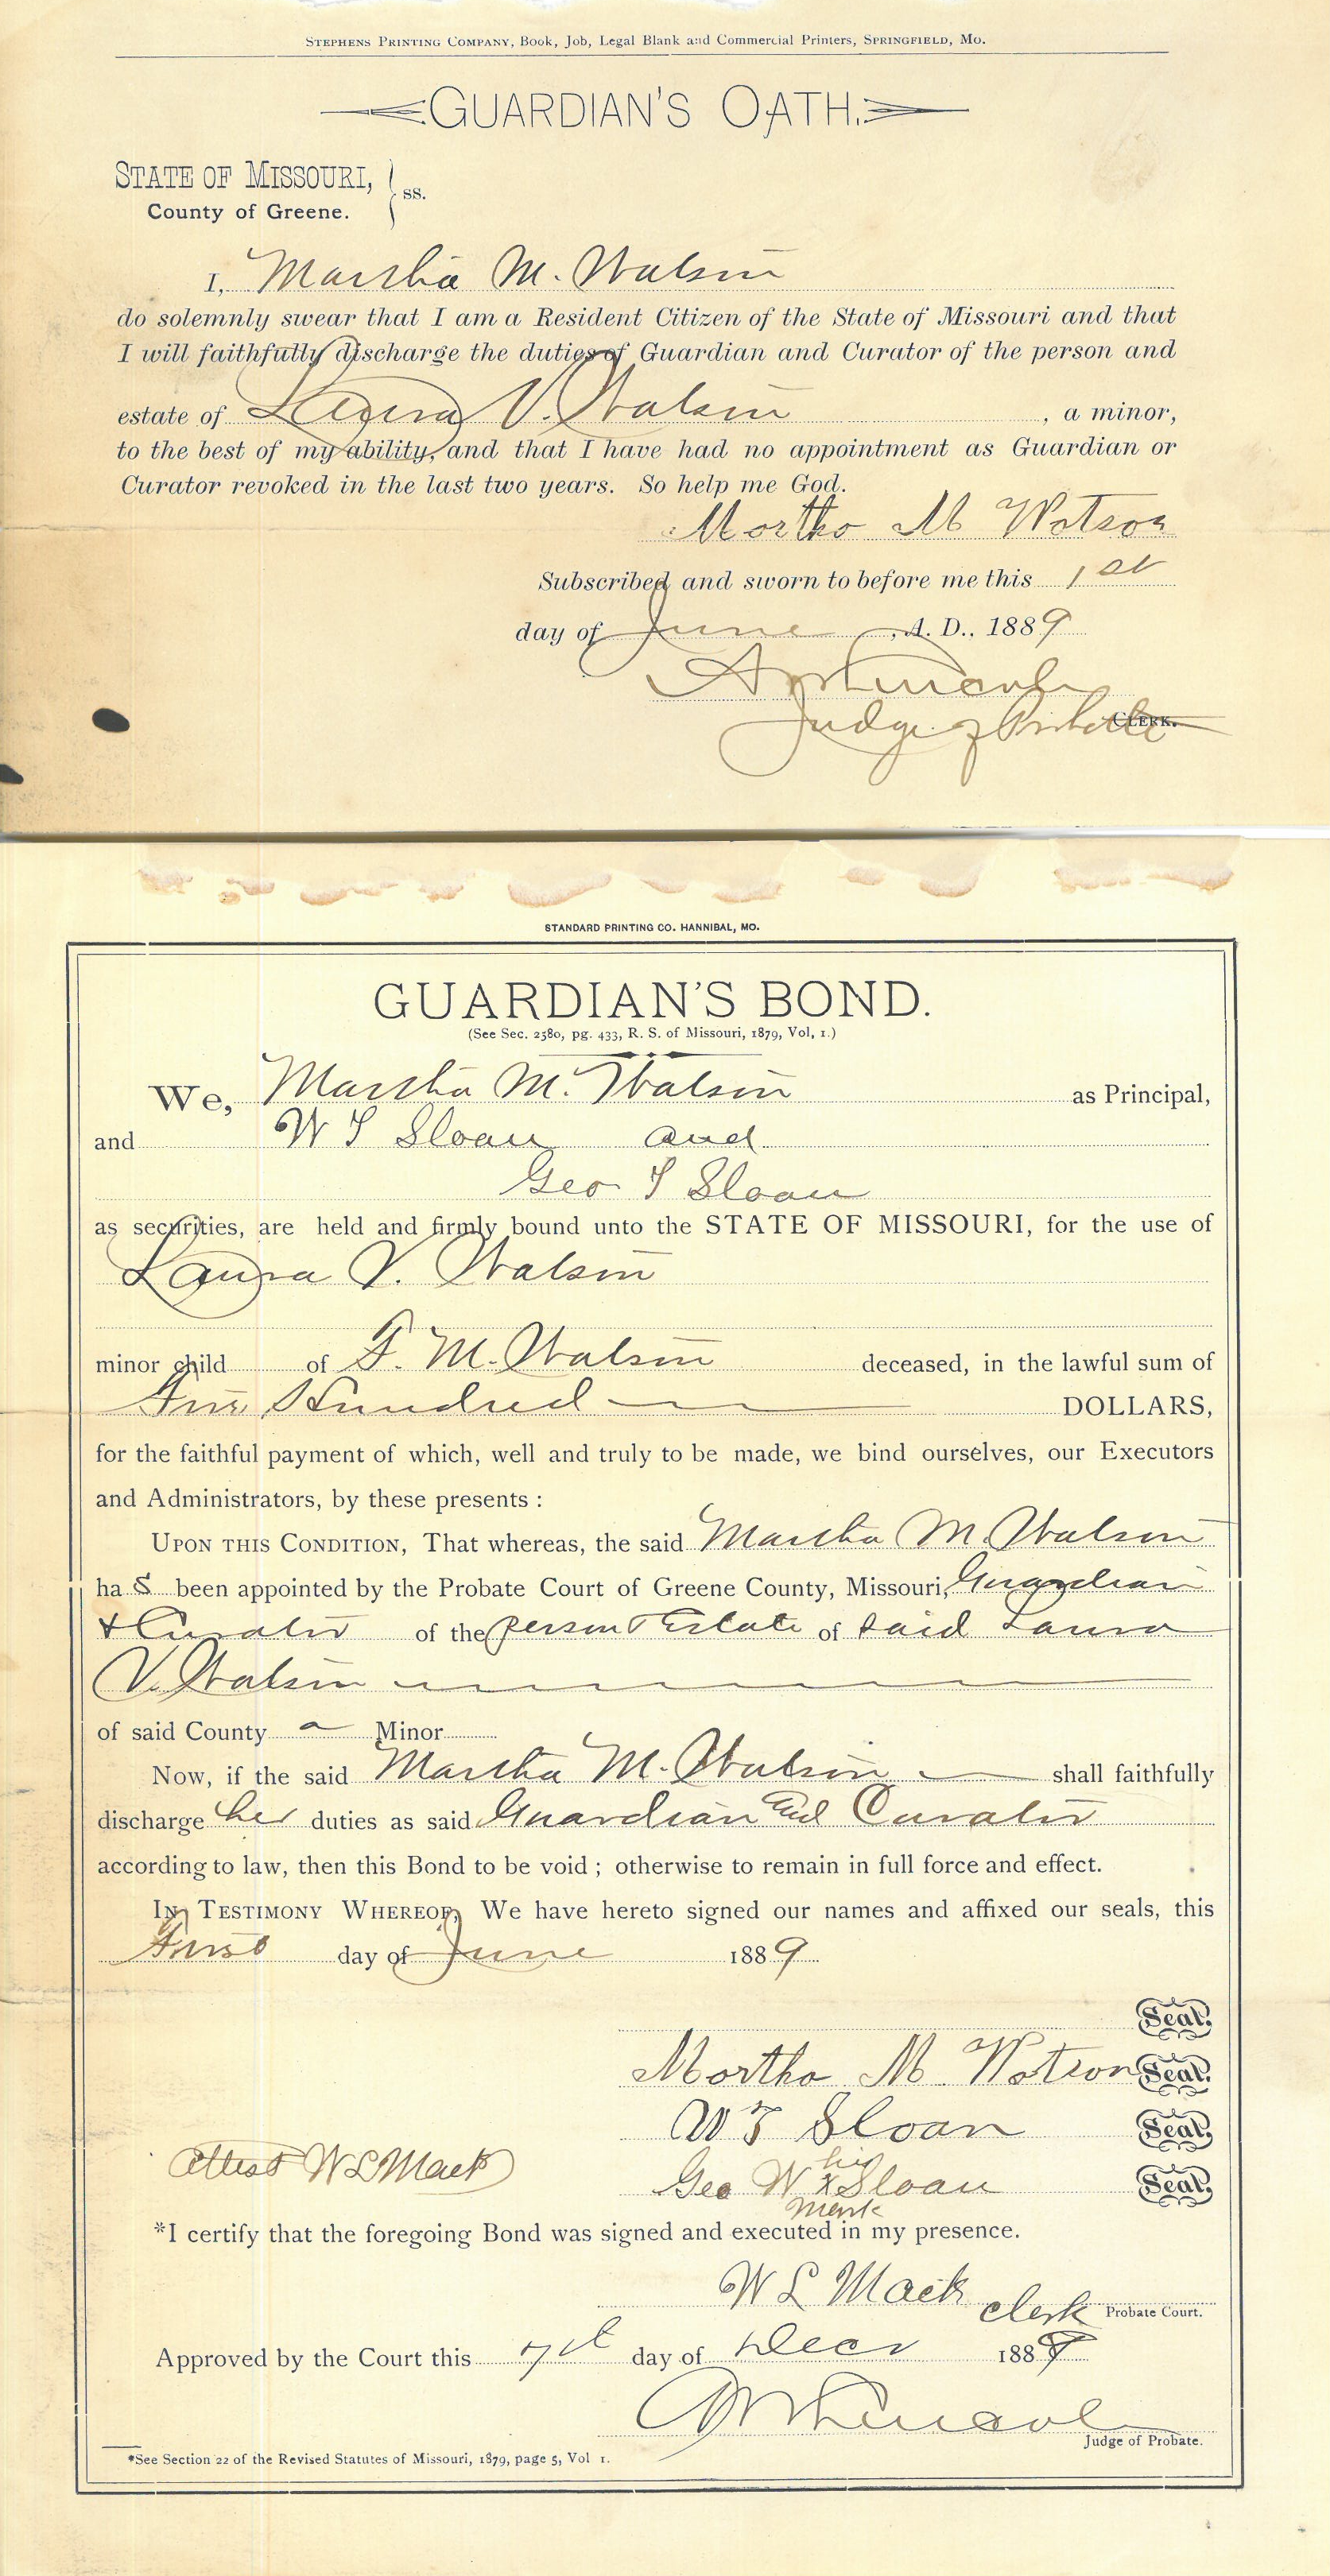 STEPHENS PRINTING COMPANY, Book, Job, Legal Blank and Commercial Printers, SPRINGFIELD, MO.
GUARDIAN'S OATH.
STATE OF MISSOURI,
County of Greene. } ss.
I, Martha M. Watson
do solemnly swear that I am a Resident Citizen of the State of Missouri and that
I will faithfully discharge the duties of Guardian and Curator of the person and
estate of Laura V. Watson, a minor,
to the best of my ability, and that I have had no appointment as Guardian or
Curator revoked in the last two years. So help me God.
Martha M Watson
Subscribed and sworn to before me this 1st
day of June, A. D., 1889
Lincoln
Judge of Probate CLERK.
STANDARD PRINTING CO. HANNIBAL, MO.
GUARDIAN'S BOND.
(See Sec. 2580, pg. 433, R. S. of Missouri, 1879, Vol, 1.)
We, Martha M. Watson as Principal,
and W T Sloan and
Geo T Sloan
as securities, are held and firmly bound unto the STATE OF MISSOURI, for the use of
Laura V. Watson
minor child of F. M. Watson deceased, in the lawful sum of
Five Hundred DOLLARS,
for the faithful payment of which, well and truly to be made, we bind ourselves, our Executors
and Administrators, by these presents :
UPON THIS CONDITION, That whereas, the said Martha M. Watson
has been appointed by the Probate Court of Greene County, Missouri, Guardian
& Curator of the person & Estate of said Laura
V. Watson
of said County a Minor
Now, if the said Martha M. Watson shall faithfully
discharge her duties as said Guardian and Curator
according to law, then this Bond to be void ; otherwise to remain in full force and effect.
IN TESTIMONY WHEREOF, We have hereto signed our names and affixed our seals, this
First day of June 1889
Seal.
Martha M. Watson Seal.
W T Sloan Seal.
his
Attest W L Mack Geo W x Sloan Seal.
mark
*I certify that the foregoing Bond was signed and executed in my presence.
W L Mack Clerk Probate Court.
Approved by the Court this 7th day of Decr 1889
Lincoln
Judge of Probate.
*See Section 22 of the Revised Statutes of Missouri, 1879, page 5, Vol 1.